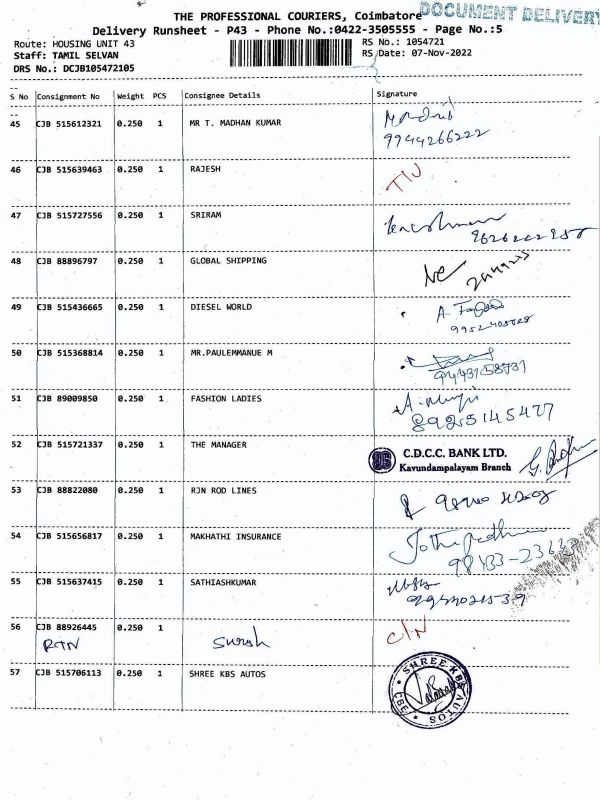 DOCUMENT DELIVERY
THE PROFESSIONAL COURIERS, Coimbatore
Delivery Runsheet - P43 - Phone No.:0422-3505555 - Page No.:5
Route: HOUSING UNIT 43 RS No.: 1054721
Staff: TAMIL SELVAN RS Date: 07-Nov-2022
DRS No.: DCJB105472105
S No Consignment No Weight PCS Consignee Details Signature
45 CJB 515612321 0.250 1 MR T. MADHAN KUMAR
9944266222
46 CJB 515639463 0.250 1 RAJESH
47 CJB 515727556 0.250 1 SRIRAM
48 CJB 88896797 0.250 1 GLOBAL SHIPPING
49 CJB 515436665 0.250 1 DIESEL WORLD
50 CJB 515368814 0.250 1 MR.PAULEMMANUE M
9443158731
51 CJB 89009850 0.250 1 FASHION LADIES
8925145477
52 CJB 515721337 0.250 1 THE MANAGER C.D.C.C. BANK LTD.
Kavundampalayam Branch
53 CJB 88822080 0.250 1 RJN ROD LINES
54 CJB 515656817 0.250 1 MAKHATHI INSURANCE
55 CJB 515637415 0.250 1 SATHIASHKUMAR
56 CJB 88926445 0.250 1 C/N
RTN Suresh
57 CJB 515706113 0.250 1 SHREE KBS AUTOS SHREE KBS AUTOS CBE